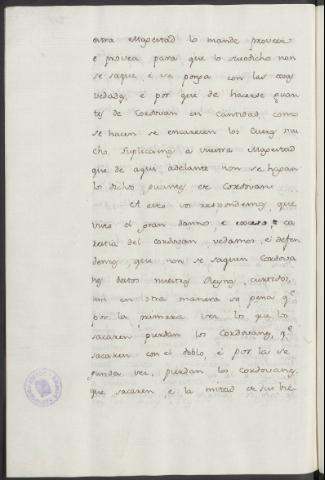 otra Magestad lo mande proveer
é provea para que lo susodicho non
se saque, é se ponga con las cosas
vedadas, é por que de hacerse guan
tes de Cordovan en cantidad, como
se hacen se encarecen los Cueros mu
cho. Suplicamos a vuestra Magestad
que de aqui adelante non se hagan
los dichos guantes de Cordovan.
A esto vos respondemos, que
visto el gran danno, é exceso, é ca
restia del cordovan, vedamos, é defen
demos, que non se saquen Cordova
nes destos nuestros Reynos, curtidos,
nin en otra manera so pena q.e
por la primera vez los que los
sacaren pierdan los Cordovanes, q.e
sacaren con el doblo, é por la se
gunda vez, pierdan los cordovanes,
que sacaren, é la mitad de sus bie-